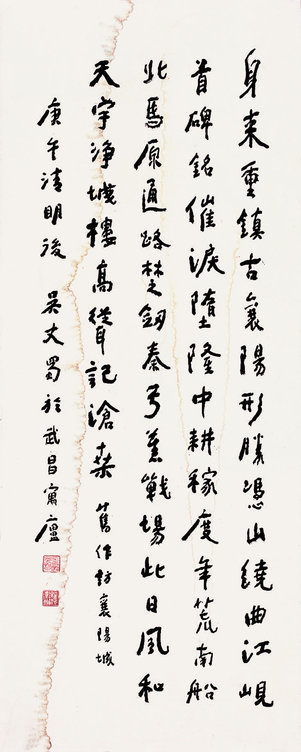 身来重鎮古襄陽形勝憑山繞曲江峴
首碑銘催淚墮隆中耕稼度年荒南船
北馬原通路楚劍秦弓舊戰場此日風和
天宇净城樓高聳記滄桑 舊作訪襄陽城
庚午清明後 吳丈蜀於武昌寓廬